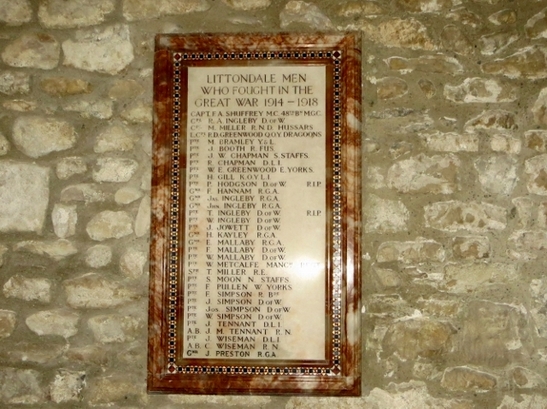 LITTONDALE MEN
WHO FOUGHT IN THE
GREAT WAR 1914 – 1918
CAPT. F.A. SHUFFREY M.C. 48TH BN M.G.C.
CPL R.A. INGLEBY D.OF W.
CPL M. MILLER R.N.D. HUSSARS
L.CPL F.D. GREENWOOD Q.O.Y. DRAGOONS
PTE M. BRAMLEY Y.&L.
PTE J. BOOTH R. FUS.
PTE J. W. CHAPMAN S. STAFFS.
PTE R. CHAPMAN D.L.I.
PTE W. E. GREENWOOD E. YORKS.
PTE H. GILL K.O.Y.L.I.
PTE P. HODGSON D.OF W. R.I.P.
GNR F. HANNAM R.G.A.
GNR INGLEBY R.G.A.
GNR JOS. INGLEBY R.G.A.
PTE T. INGLEBY D.OF W. R.I.P.
PTE W. INGLEBY D.OF W.
PTE J. JOWETT D.OF W.
GNR H. KAYLEY R.G.A.
GNR MALLABY R.G.A.
PTE F. MALLABY D.OF W.
PTE W. MALLABY D.OF W.
PTE W. METCALFE
T. MILLER R.E.
PTE S. MOON N. STAFFS.
PTE F. PULLEN W. YORKS
F. SIMPSON
PTE J. SIMPSON D.OF W.
PTE JOS. SIMPSON D.OF W.
PTE W. SIMPSON D.OF W.
PTE J. TENNANT D.L.I.
A.B. J. M. TENNANT R.N.
PTE J. WISEMAN D.L.I.
A.B. C. WISEMAN R.N.
GNR J. PRESTON R.G.A.